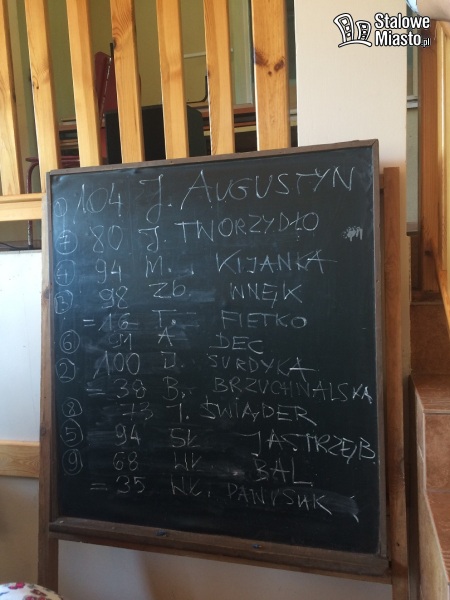 Stalowe
Miasto.pl
① 104 J. AUGUSTYN
⑦ 80 J. TWORZYDŁO
④ 94 M. KIJANKA
③ 98 Zb. WNĘK
= 16 T. FIETKO
⑥ 91 A. DEC
② 100 D. SURDYKA
= 38 B. BRZUCHNALSKA
⑧ 73 J. ŚWIĄDER
⑤ 94 St. JASTRZĘB.
⑨ 68 Wł. BAL
= 35 Wł.